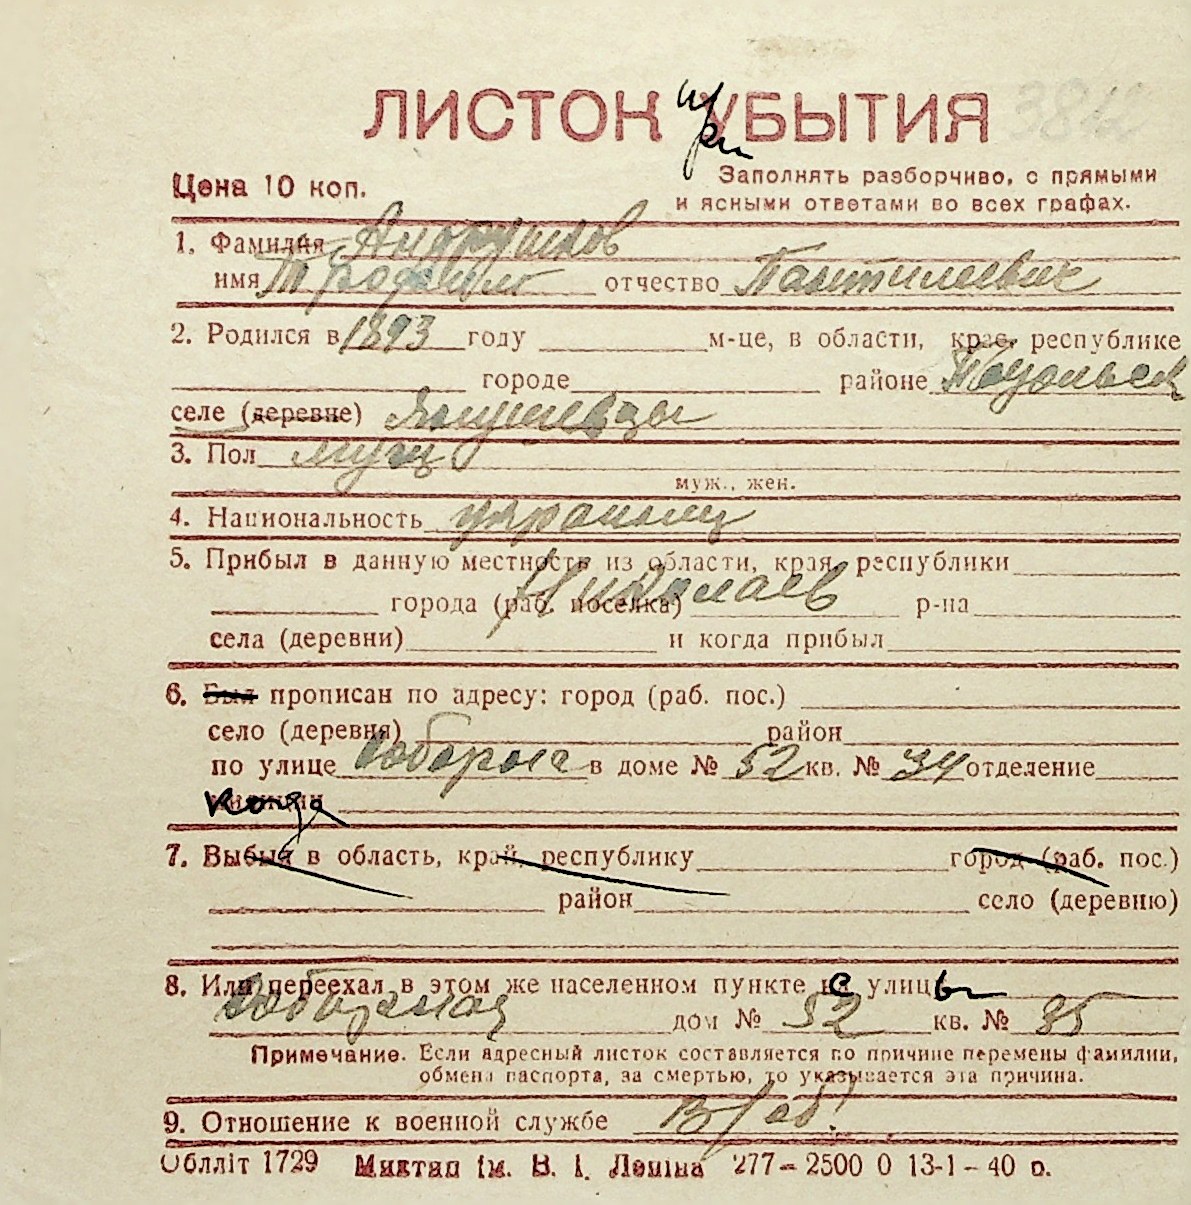 ЛИСТОК при УБЫТИЯ 3812
Цена 10 коп. Заполнять разборчиво, с прямыми
и ясными ответами во всех графах.
1. Фамилия Андрушков
имя Трофим отчество Пантилеевич
2. Родился в 1893 году м-це, в области, крае, республике
городе районе Подольск
селе (деревне)
3. Пол мущ
муж., жен.
4. Национальность украинец
5. Прибыл в данную местность из области, края, республики
города (раб. поселка) Николаев р-на
села (деревни) и когда прибыл
6. Был прописан по адресу: город (раб. пос.)
село (деревня) район
по улице Соборная в доме № 52 кв. № 34 отделение
милиции когда
7. Выбыл в область, край, республику город (раб. пос.)
район село (деревню)
8. Или переехал в этом же населенном пункте с улицы
Соборная дом № 52 кв. № 35
Примечание. Если адресный листок составляется по причине перемены фамилии,
обмена паспорта, за смертью, то указывается эта причина.
9. Отношение к военной службе в/об
Облліт 1729 Миктап ім. В. І. Леніна 277–2500 0 13-1–40 р.